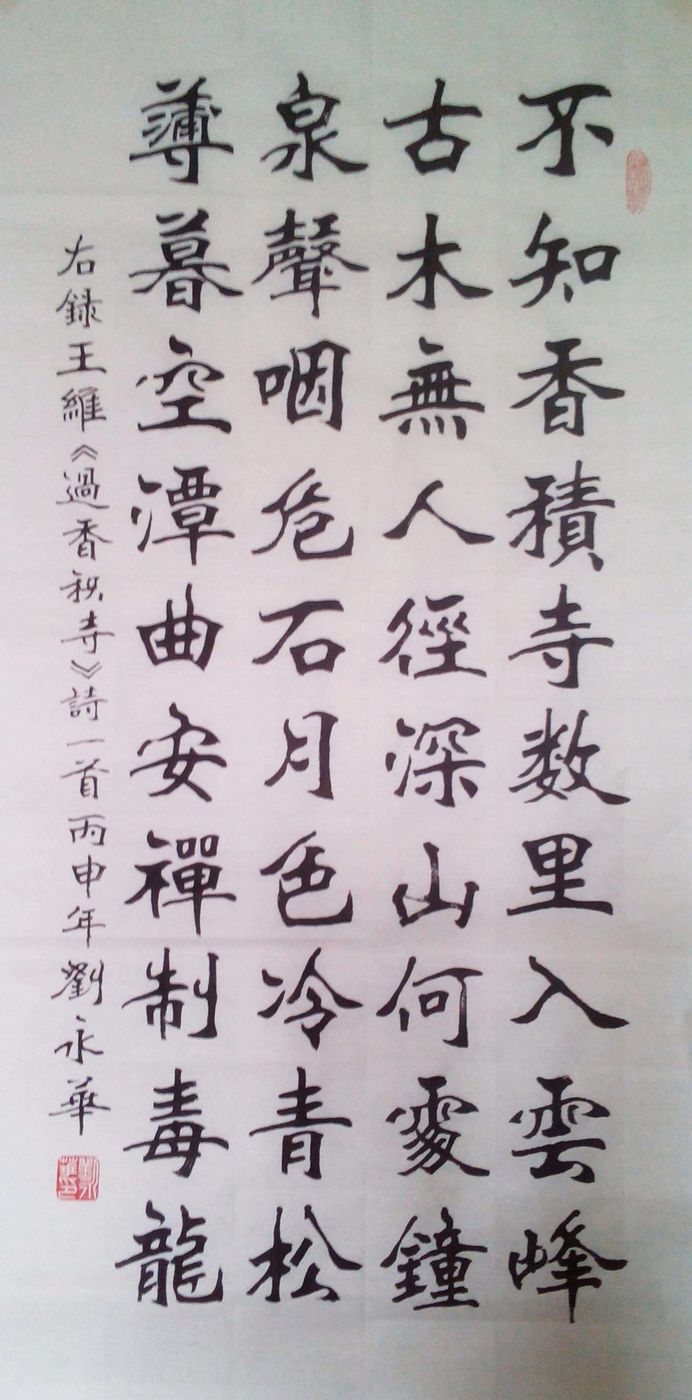 不知香積寺数里入雲峰
古木無人徑深山何處鐘
泉聲咽危石月色冷青松
薄暮空潭曲安禪制毒龍
右録王維《過香积寺》詩一首丙申年劉永華